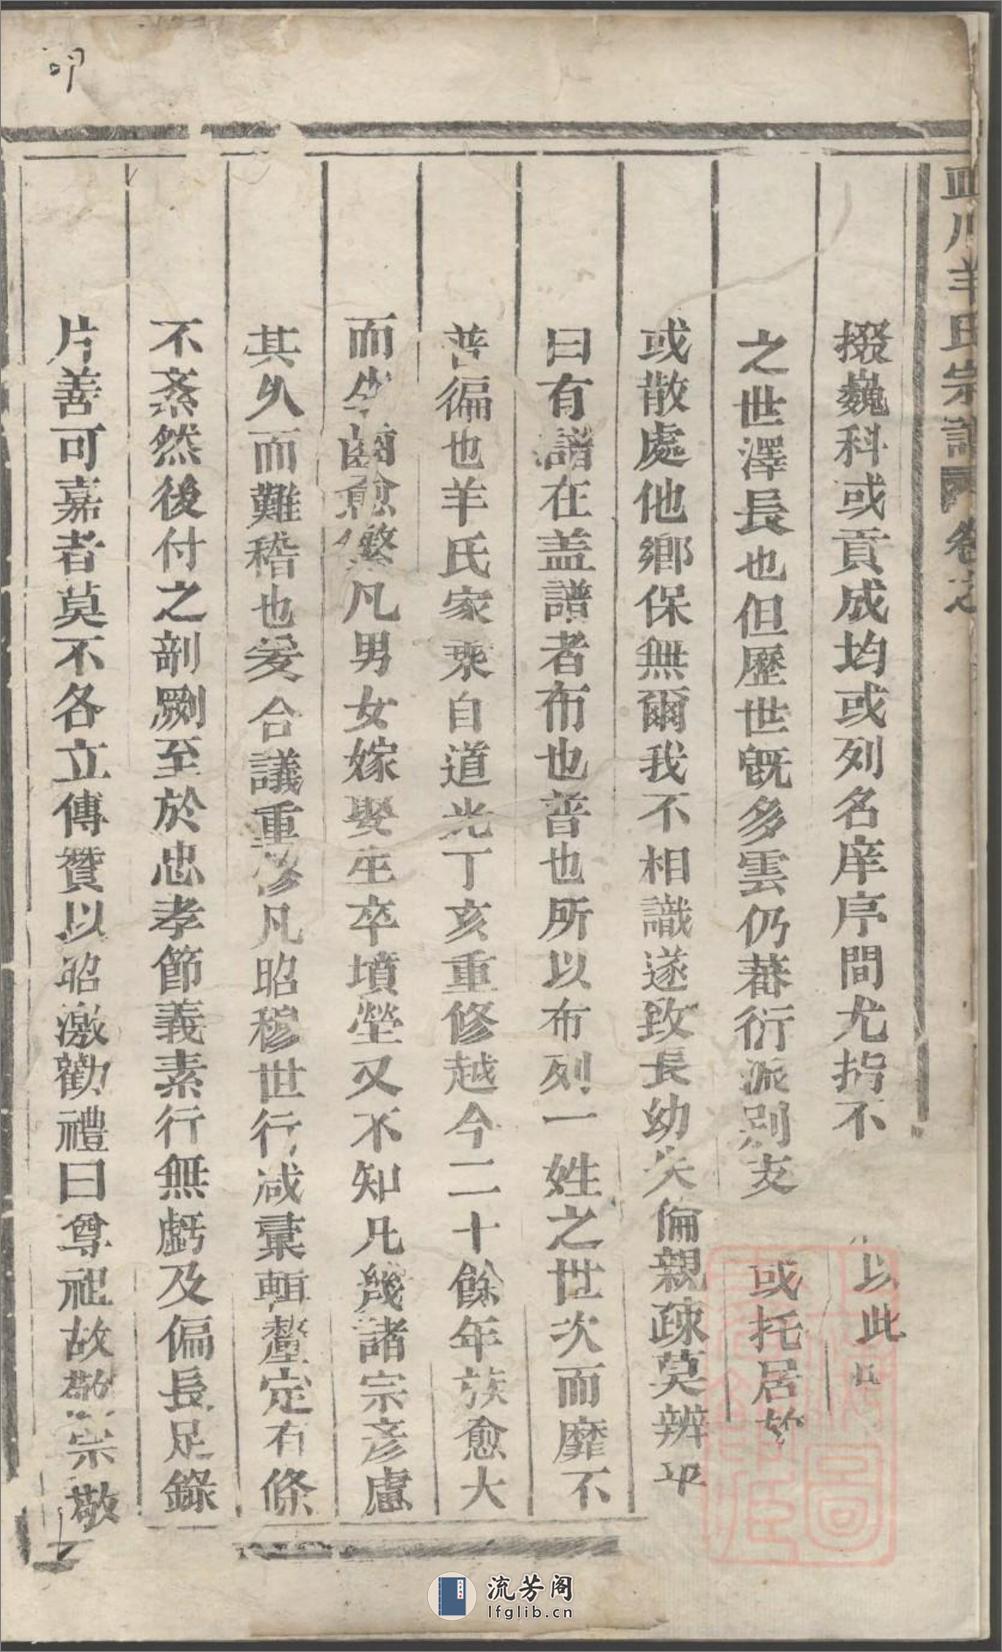 川羊氏宗譜 卷之
掇巍科或貢成均或列名庠序間尤指不 以此
之世澤長也但歷世旣多雲仍蕃衍派别支 或托居於
或散處他鄉保無爾我不相識遂致長幼失倫親疎莫辨平
曰有譜在盖譜者布也普也所以布列一姓之世次而靡不
普徧也羊氏家乘自道光丁亥重修越今二十餘年族愈大
而生齒愈繁凡男女嫁娶生卒墳塋又不知凡幾諸宗彥慮
其久而難稽也爰合議重修凡昭穆世行减彙輯釐定有條
不紊然後付之剞劂至於忠孝節義素行無虧及偏長足錄
片善可嘉者莫不各立傳贊以昭激勸禮曰尊祖故敬宗敬
流芳阁
lfglib.cn